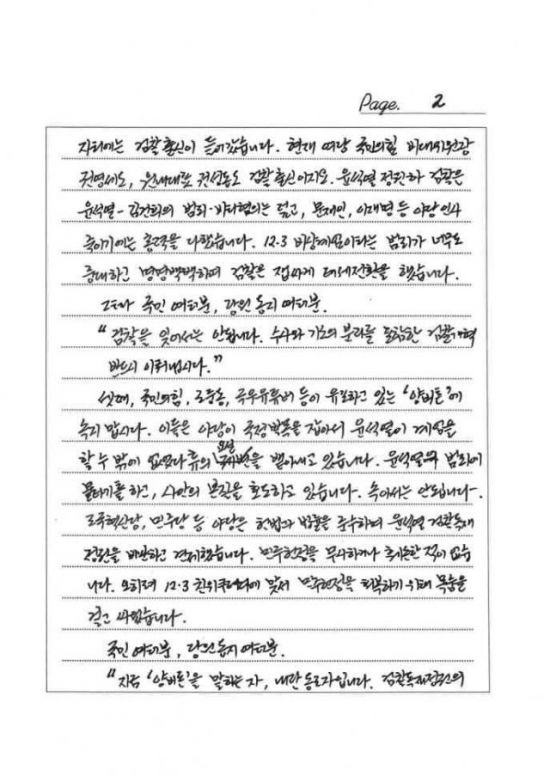 Page. 2
자리에는 검찰 출신이 들어갔습니다. 현재 여당 국민의힘 비대위원장
권영세도, 원내대표 권성동도 검찰 출신이지요. 윤석열 정권하 검찰은
윤석열-김건희의 범죄·비리혐의는 덮고, 문재인, 이재명 등 야당 인사
죽이기에는 총력을 다했습니다. 12.3 비상계엄이라는 범죄가 너무도
중대하고 명명백백하여 검찰은 잽싸게 태세전환을 했습니다.
그러나 국민 여러분, 당원 동지 여러분.
"검찰을 잊어서는 안됩니다. 수사와 기소의 분리를 포함한 검찰개혁
반드시 이뤄냅시다."
셋째, 국민의힘, 조중동, 극우유튜버 등이 유포하고 있는 '양비론'에
속지 맙시다. 이들은 야당이 국정 발목을 잡아서 윤석열이 계엄을
할 수 밖에 없었다 류의 요설을 뱉어내고 있습니다. 윤석열의 범죄에
물타기를 하고, 사안의 본질을 호도하고 있습니다. 속아서는 안됩니다.
조국혁신당, 민주당 등 야당은 헌법과 법률을 준수하며 윤석열 검찰독재
정권을 비판하고 견제했습니다. 민주헌정을 무시하거나 훼손한 적이 없습
니다. 오히려 12.3 친위쿠데타에 맞서 민주헌정을 회복하기 위해 목숨을
걸고 싸웠습니다.
국민 여러분, 당원 동지 여러분.
"지금 '양비론'을 말하는 자, 내란 동조자입니다. 검찰독재정권의